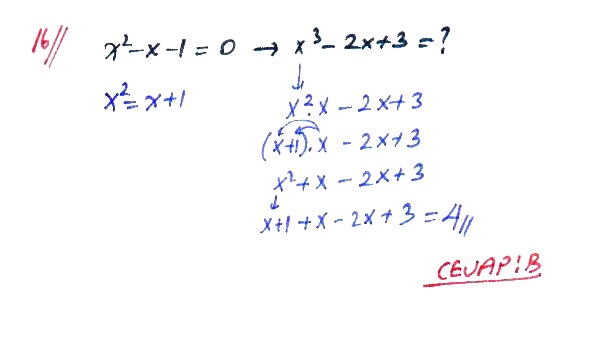 16// x²-x-1=0 → x³-2x+3=?
x²=x+1
↓
x².x-2x+3
(x+1).x-2x+3
x²+x-2x+3
↓
x+1+x-2x+3=4//
CEVAP:B